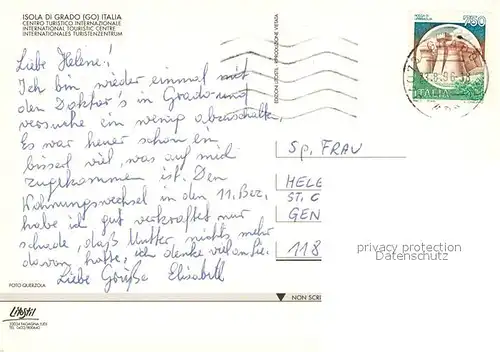 ISOLA DI GRADO (GO) ITALIA
CENTRO TURISTICO INTERNAZIONALE
INTERNATIONAL TOURISTIC CENTRE
INTERNATIONALES TURISTENZENTRUM
Liebe Helene!
Ich bin wieder einmal mit
den Doktor's in Grado und
versuche ein wenig abzuschalten.
Es war heuer schon ein
bisserl viel, was auf mich
zugekommen ist. Den
Wohnungswechsel in den 11. Bez.
habe ich gut verkraftet nur
schade, daß Mutter nichts mehr
davon hatte, ich denke viel an Sie.
Liebe Grüße Elisabeth
FOTO QUERZOLA
Litostil
33034 FAGAGNA (UD)
TEL. 0432/800640
EDIZIONI LITOSTIL RIPRODUZIONE VIETATA
750
ITALIA
Sp. FRAU
HELE
ST. C
GEN
118
NON SCRI
privacy protection
Datenschutz